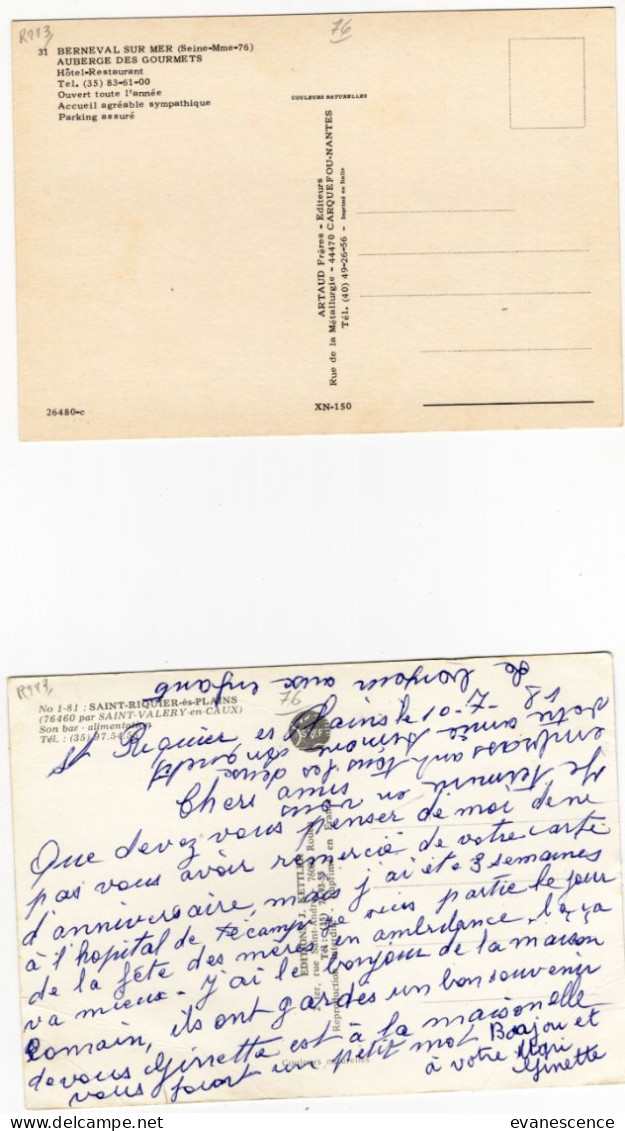 R113,
76
31 BERNEVAL SUR MER (Seine-Mme-76)
AUBERGE DES GOURMETS
Hôtel-Restaurant
Tel. (35) 83-61-00
Ouvert toute l'année
Accueil agréable sympathique
Parking assuré
COULEURS NATURELLES
ARTAUD Frères - Editeurs
Rue de la Métallurgie - 44470 CARQUEFOU-NANTES
Tél. (40) 49-26-56 - Imprimé en Italie
26480-c
XN-150
R113,
76
No 1-81 : SAINT-RIQUIER-ès-PLAINS
(76460 par SAINT-VALERY-en-CAUX)
Son bar - alimentation
Tél. : (35) 97.54
EDITIONS J. KETTLER
rue Saint-André 76000 Rouen
Reproduction interdite Imprimé en France
Couleurs naturelles
St Riquier es Plains
Chers amis
Que devez vous penser de moi de ne
pas vous avoir remercié de votre carte
d'anniversaire, mais j'ai été 3 semaines
à l'hopital de Fécamp je suis partie le jour
de la fête des mères en ambulance, la ça
va mieux - j'ai le bonjour de la maison
Romain, ils ont gardés un bon souvenir
de vous Ginette est à la maison elle
vous fourt un petit mot
Bonjou et
à votre Mari
Ginette
Je termine en vous
embrassant tous les deux
votre amie Simone
le bonjour aux enfants